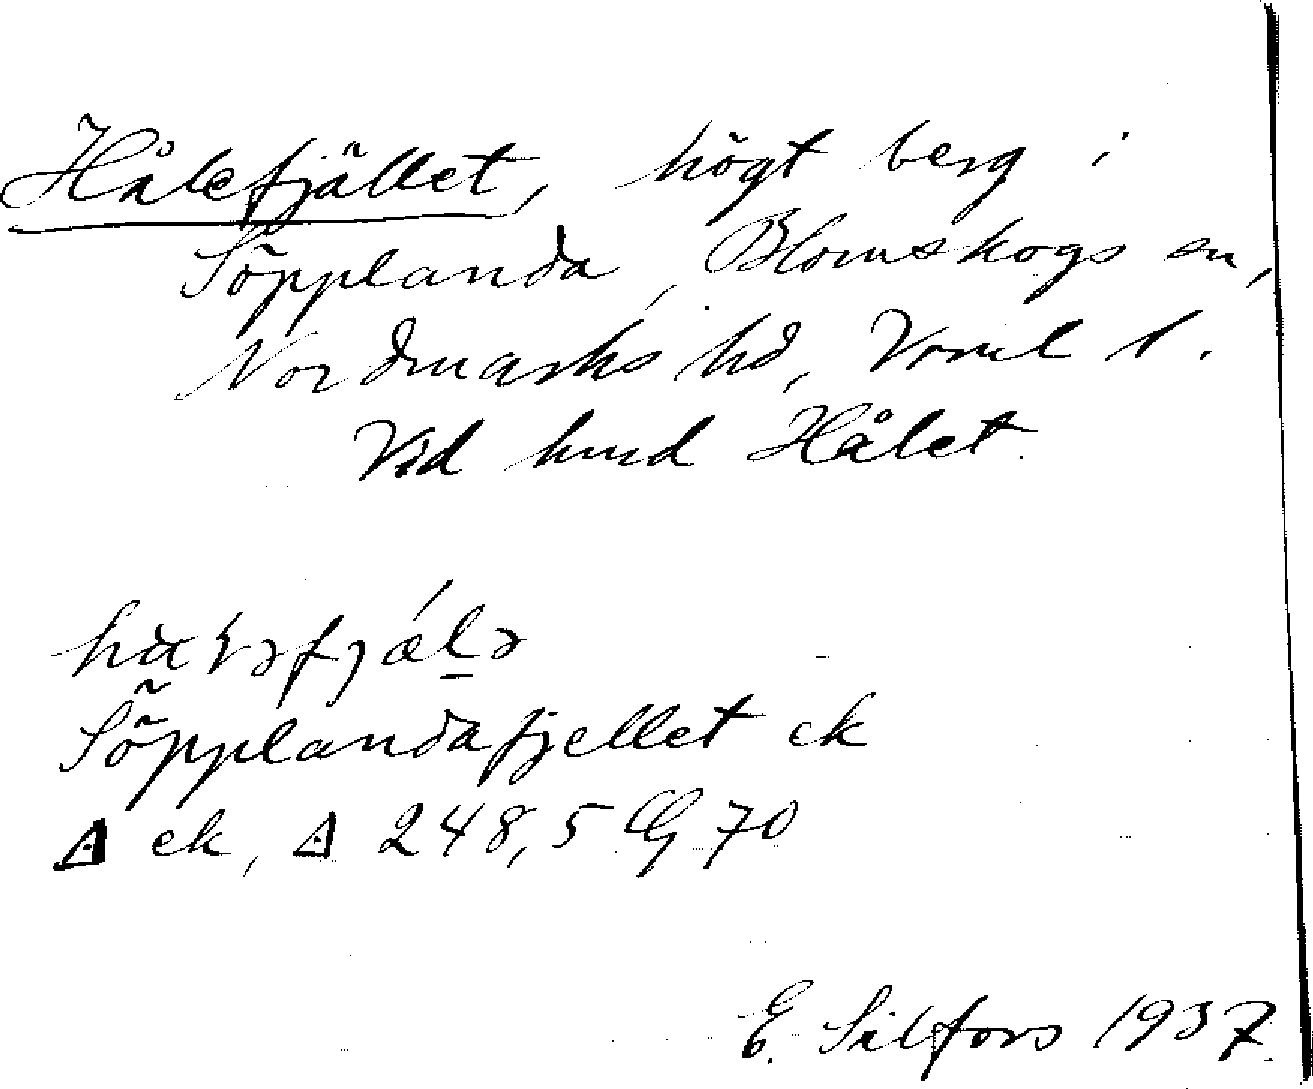 Hålefjället, högt berg i
Söpplanda, Blomskogs sn,
Nordmarks hd, Värml l.
Vid hmd Hålet.
Söpplandafjellet ek
△ ek, △ 248,5 GG 70
E. Silfors 1937